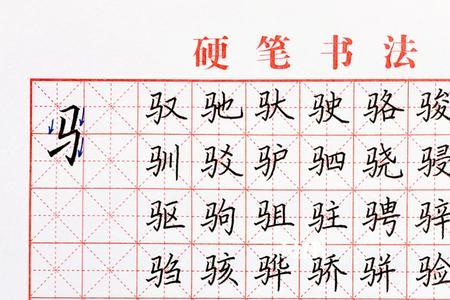 硬笔书法
马 驭驰驮驶骆骏
驯驳驴驷骁骎
驱驹驵驻骋骍
驺骇骅骄骈验